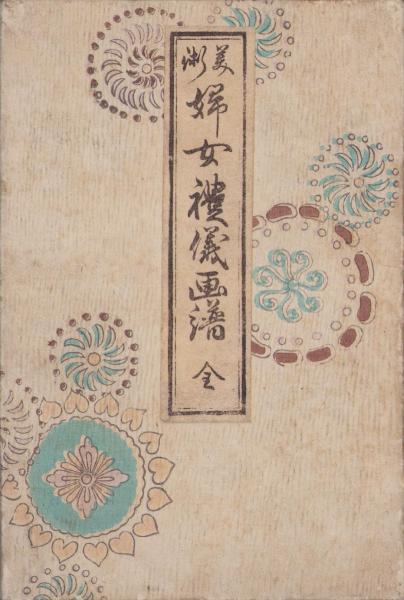 美術
婦女禮儀画譜 全